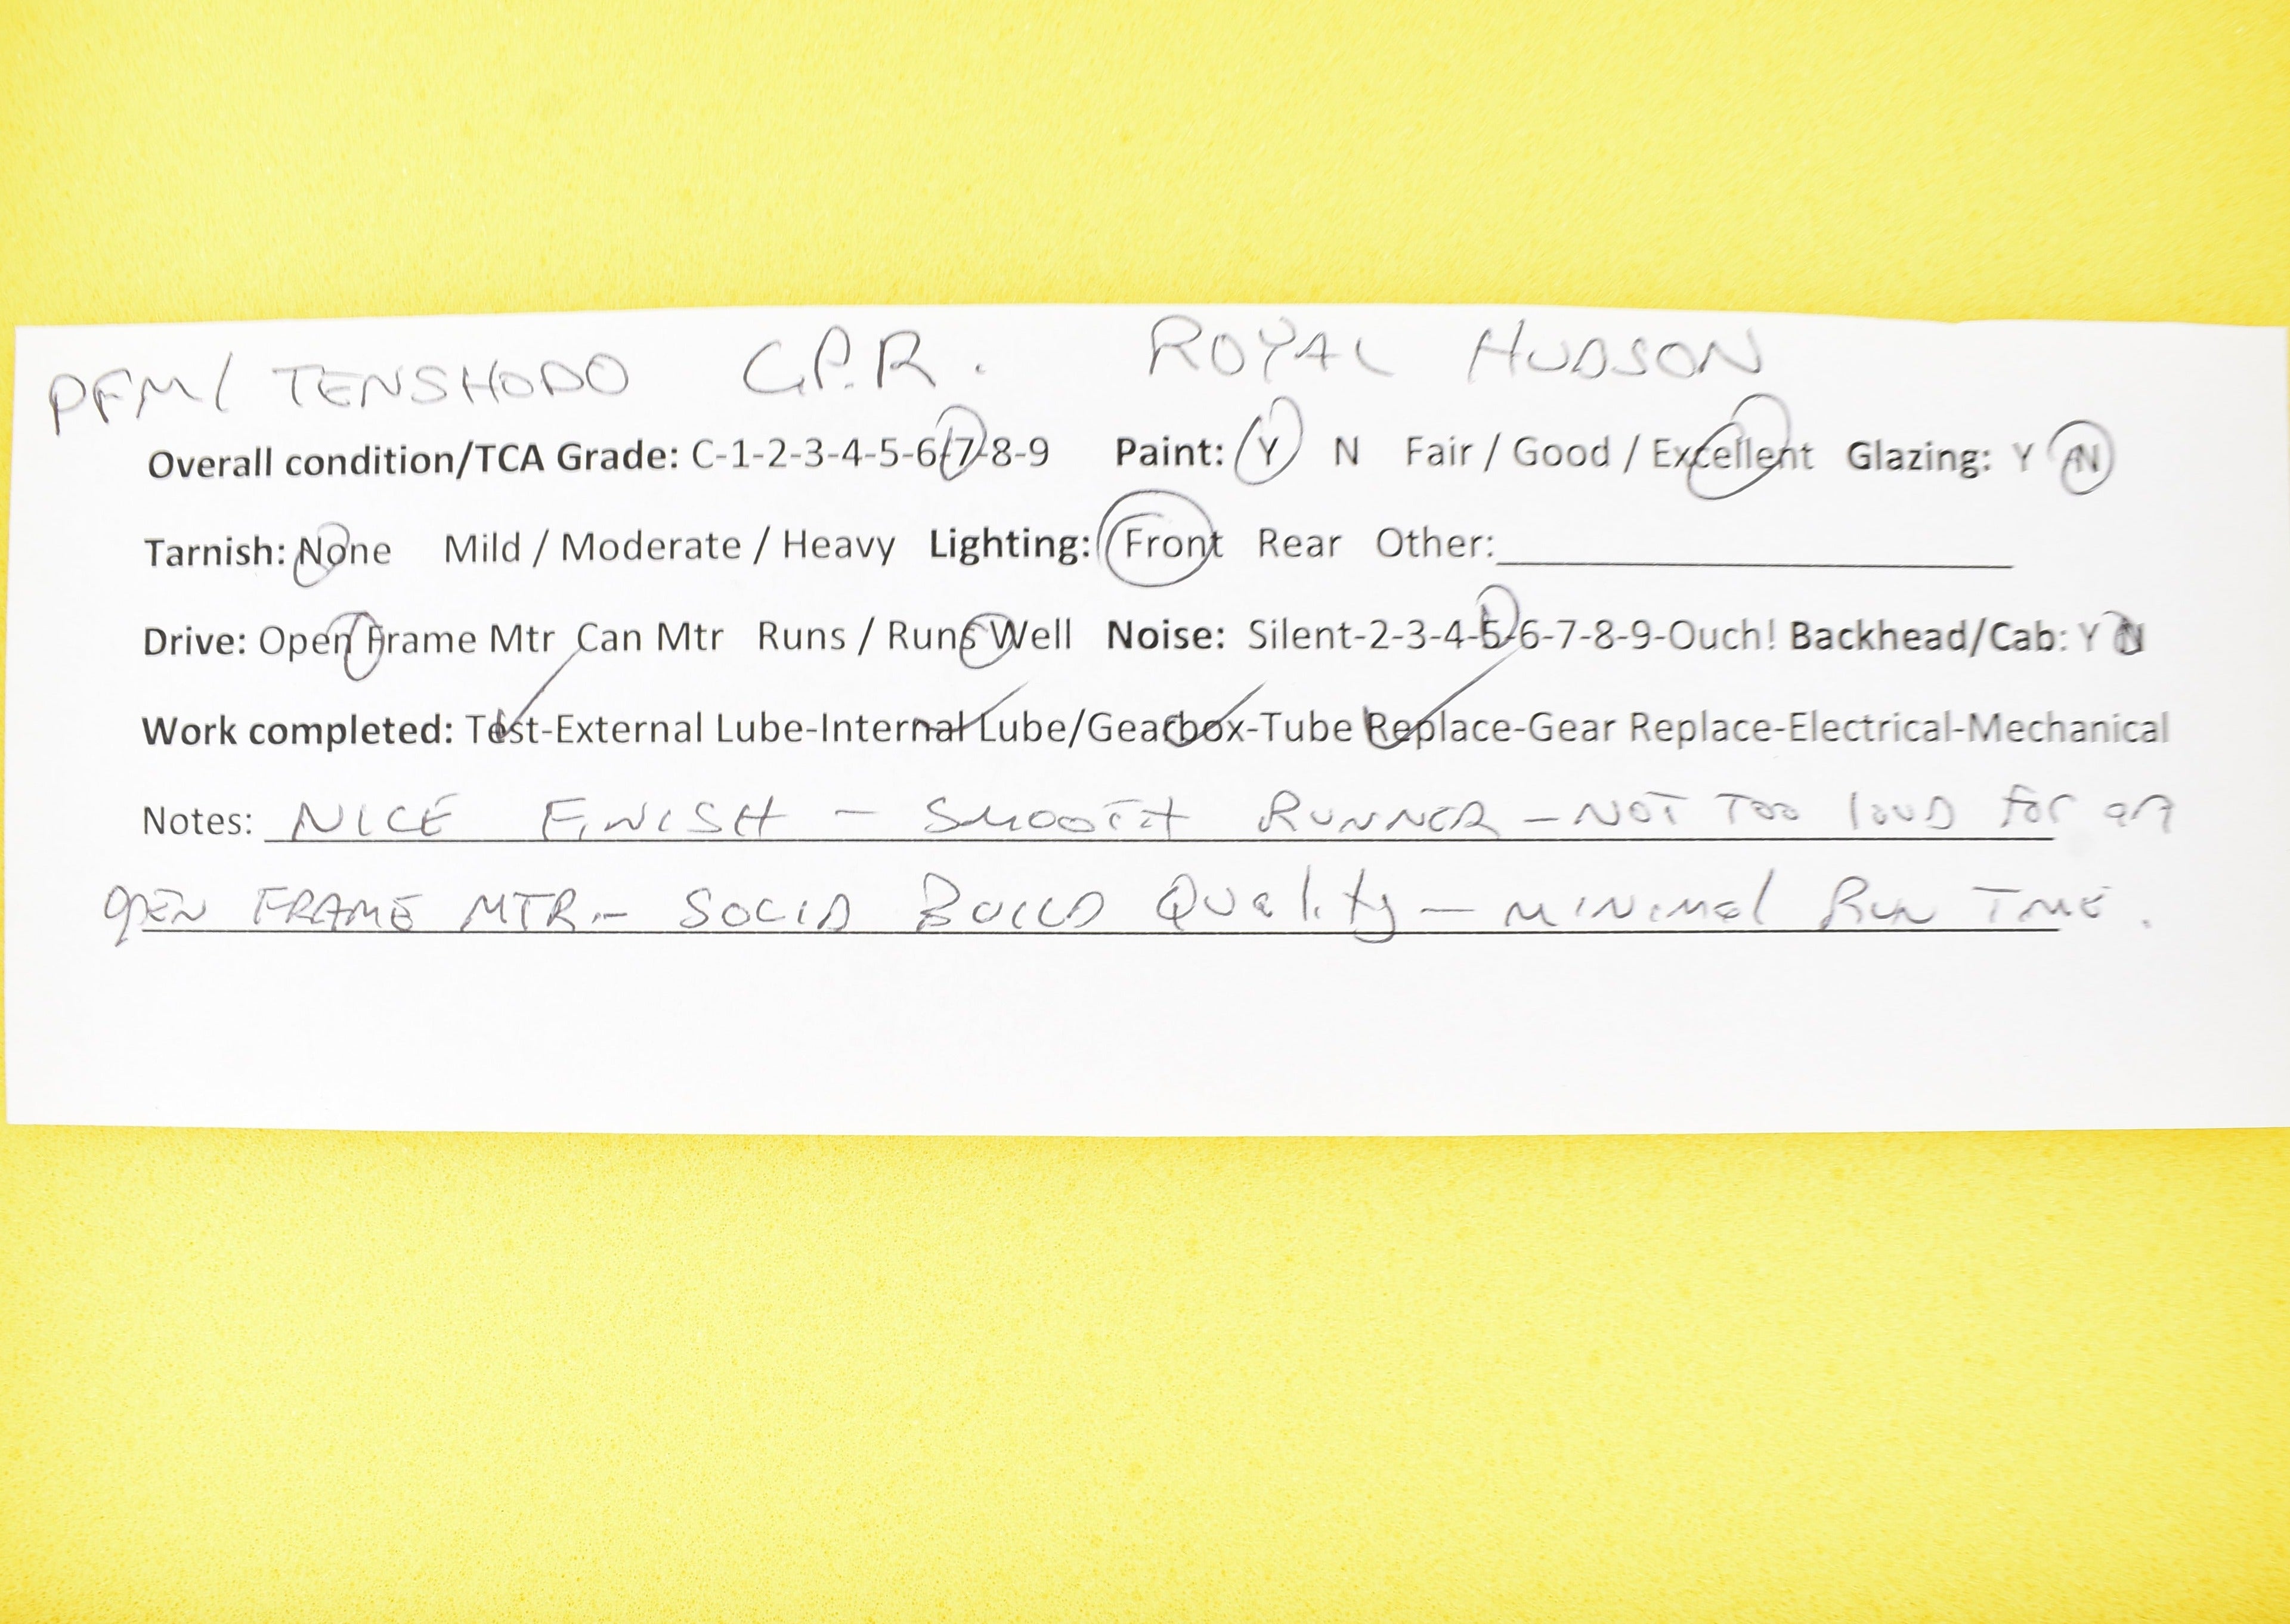 PFM/ TENSHODO C.P.R. ROYAL HUDSON
Overall condition/TCA Grade: C-1-2-3-4-5-6-7-8-9 Paint: Y N Fair / Good / Excellent Glazing: Y N
Tarnish: None Mild / Moderate / Heavy Lighting: Front Rear Other:
Drive: Open Frame Mtr Can Mtr Runs / Runs Well Noise: Silent-2-3-4-5-6-7-8-9-Ouch! Backhead/Cab: Y N
Work completed: Test-External Lube-Internal Lube/Gearbox-Tube Replace-Gear Replace-Electrical-Mechanical
Notes: NICE FINISH - SMOOTH RUNNER - NOT TOO LOUD for an
OPEN FRAME MTR. - SOLID BUILD QUality - MINIMal RUN TIME.